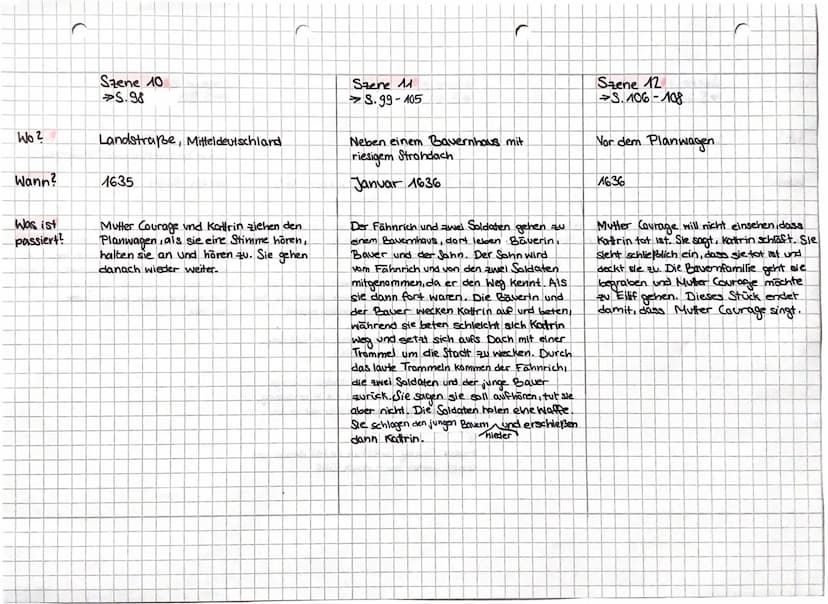 Szene 10
→ S. 98
Szene 11
→ S. 99-105
Szene 12
→ S. 106-108
Wo?
Landstraße, Mitteldeutschland
Neben einem Bauernhaus mit
riesigem Strohdach
Vor dem Planwagen
Wann?
1635
Januar 1636
1636
Was ist
passiert?
Mutter Courage und Kattrin ziehen den
Planwagen, als sie eine Stimme hören,
halten sie an und hören zu. Sie gehen
danach wieder weiter.
Der Fähnrich und zwei Soldaten gehen zu
einem Bauernhaus, dort leben Bäuerin,
Bauer und der Sohn. Der Sohn wird
vom Fähnrich und von den zwei Soldaten
mitgenommen, da er den Weg kennt. Als
sie dann fort waren. Die Bäuerin und
der Bauer wecken Kattrin auf und beten,
während sie beten schleicht sich Kattrin
weg und setzt sich aufs Dach mit einer
Trommel um die Stadt zu wecken. Durch
das laute Trommeln kommen der Fähnrich,
die zwei Soldaten und der junge Bauer
zurück. Sie sagen sie soll aufhören, tut sie
aber nicht. Die Soldaten holen eine Waffe.
Sie schlagen den jungen Bauern nieder und erschießen
dann Kattrin.
Mutter Courage will nicht einsehen, dass
Kattrin tot ist. Sie sagt, Kattrin schläft. Sie
sieht schließlich ein, dass sie tot ist und
deckt sie zu. Die Bauernfamilie geht sie
begraben und Mutter Courage möchte
zu Eilif gehen. Dieses Stück endet
damit, dass Mutter Courage singt.